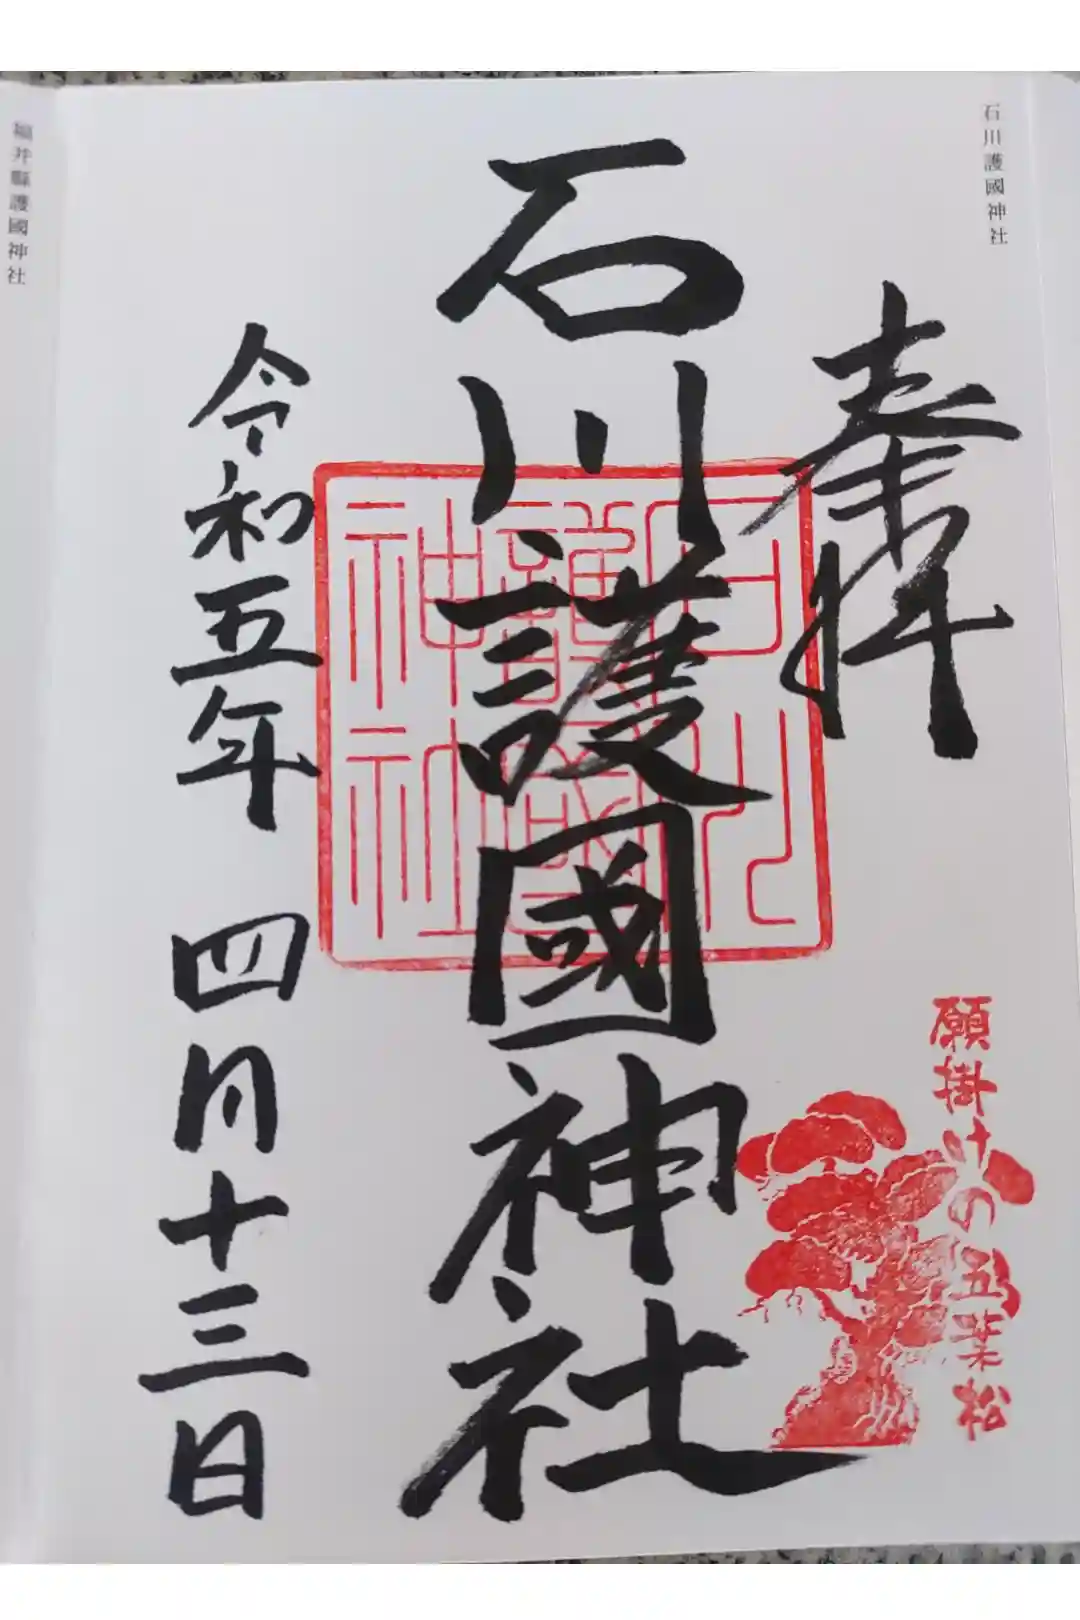 石川護國神社
奉拝
石川護國神社
令和五年 四月十三日
石川
護國
神社
願掛けの五葉松
福井縣護國神社